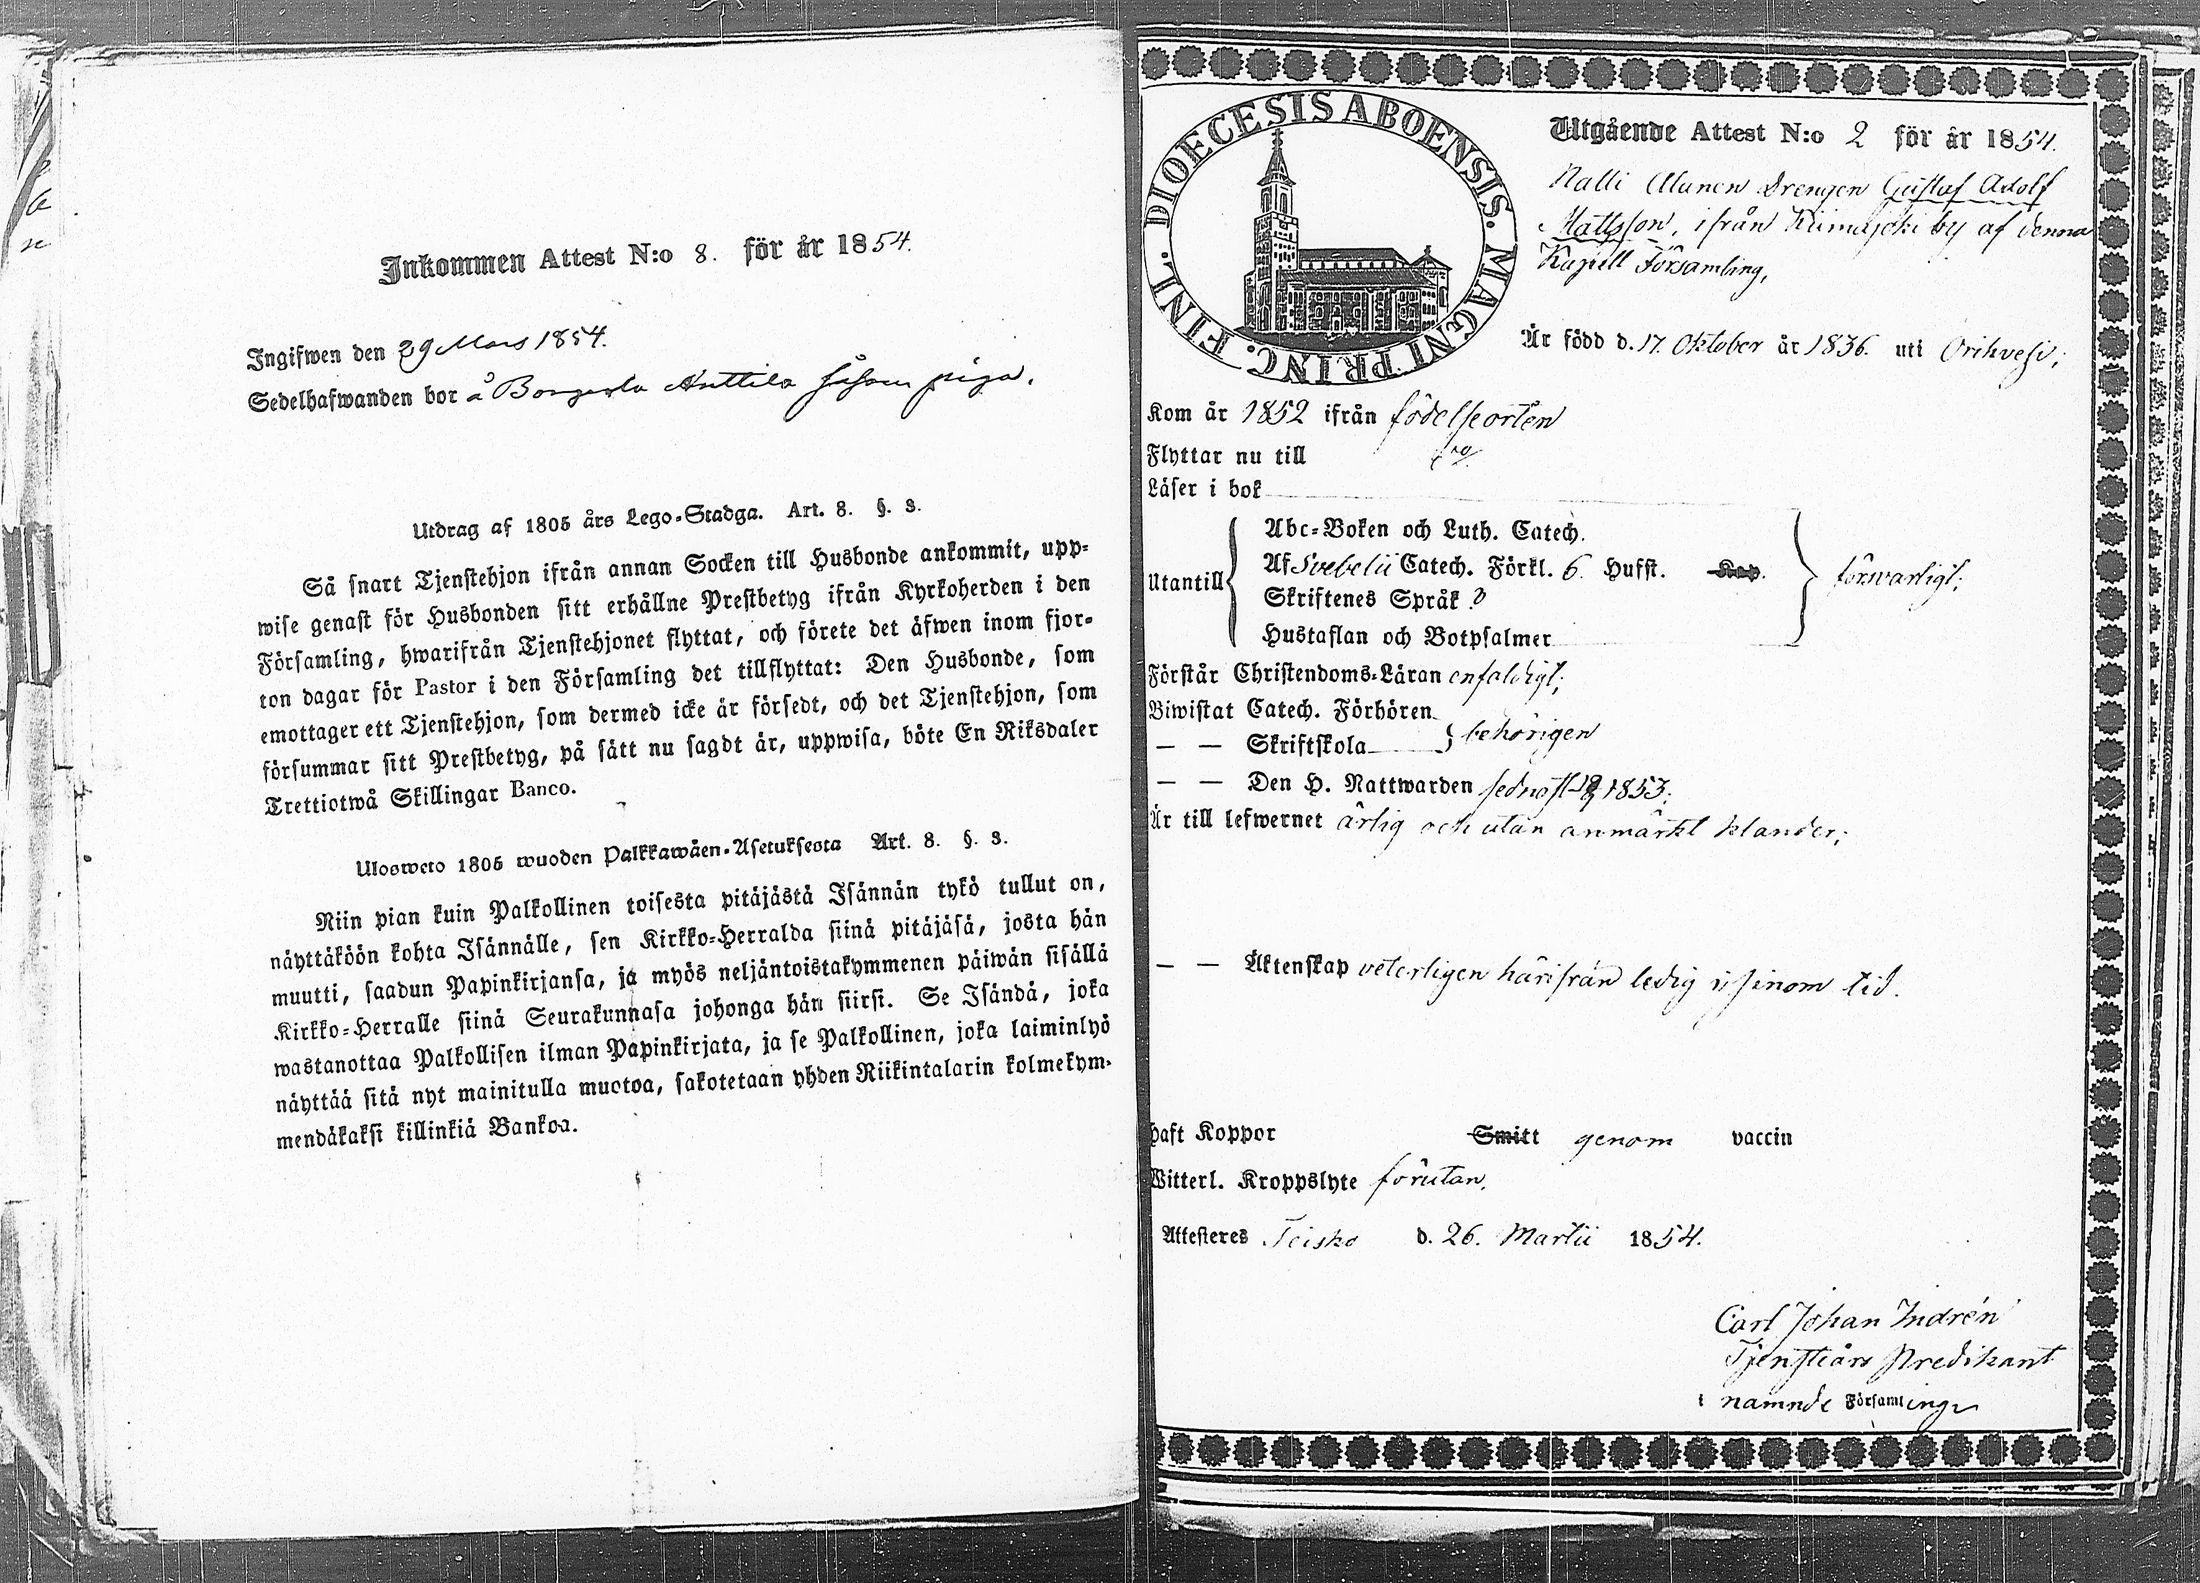 Inkommen Attest N:o 8. för år 1854.
Ingifwen den 29 Mars 1854.
Sedelhafwanden bor å Anttila såsom piga.
Utdrag af 1805 års Lego-Stadga. Art. 8. §. 3.
Så snart Tjenstehjon ifrån annan Socken till Husbonde ankommit, upp-
wise genast för Husbonden sitt erhållne Prestbetyg ifrån Kyrkoherden i den
Församling, hwarifrån Tjenstehjonet flyttat, och förete det äfwen inom fjor-
ton dagar för Pastor i den Församling det tillflyttat: Den Husbonde, som
emottager ett Tjenstehjon, som dermed icke är försedt, och det Tjenstehjon, som
försummar sitt Prestbetyg, på sätt nu sagdt är, uppwisa, böte En Riksdaler
Trettiotwå Skillingar Banco.
Ulosweto 1805 wuoden Palkkawäen-Asetuksesta Art. 8. §. 3.
Niin pian kuin Palkollinen toisesta pitäjästä Isännän tykö tullut on,
näyttäköön kohta Isännälle, sen Kirkko-Herralda siinä pitäjäsä, josta hän
muutti, saadun Papinkirjansa, ja myös neljäntoistakymmenen päiwän sisällä
Kirkko-Herralle siinä Seurakunnasa johonga hän siirsi. Se Isändä, joka
wastanottaa Palkollisen ilman Papinkirjata, ja se Palkollinen, joka laiminlyö
näyttää sitä nyt mainitulla muotoa, sakotetaan yhden Riikintalarin kolmekym-
mendäkaksi killinkiä Bankoa.
DIOECESIS ABOENSIS. MAGNI PRINC. FINL.
Utgående Attest N:o 2 för år 1854.
Nalli Alanen Drengen Gustaf Adolf
Mattsson, ifrån Kiimajoki by af denna
Kapell Församling,
Är född d. 17. Oktober år 1836. uti Orihvesi;
Kom år 1852 ifrån födelseorten
Flyttar nu till
Läser i bok
Abc-Boken och Luth. Catech.
Utantill Af Svebelii Catech. Förkl. 6. Hufst. Kap. försvarligt;
Skriftenes Språk
Hustaflan och Botpsalmer
Förstår Christendoms-Läran enfaldigt;
Biwistat Catech. Förhören
— — Skriftskola behörigen
— — Den H. Nattwarden sednast 1853;
Är till lefwernet ärlig och utan anmärkt klander;
— — Äktenskap veterligen härifrån ledig i sinom tid.
haft Koppor Smitt genom vaccin
Witterl. Kroppslyte förutan.
Attesteres Teisko d. 26. Martii 1854.
Carl Johan Indrén
Tjenstförr Predikant
i nämnde Församling